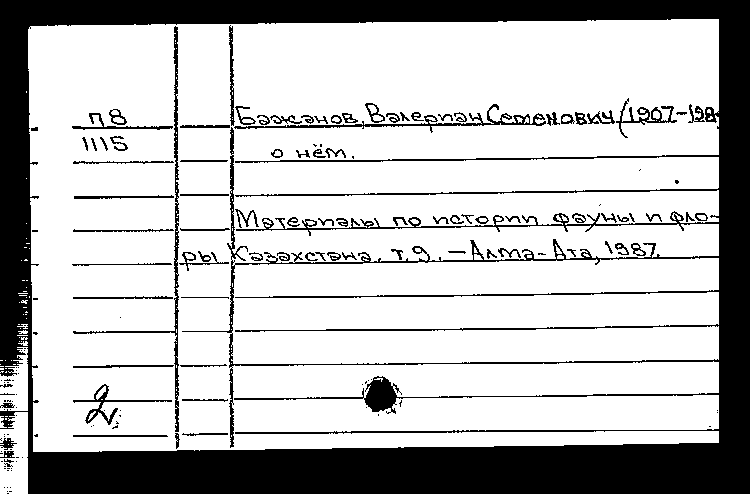 П8 Бажанов, Валериан Семенович (1907-198
1115 о нём.
Материалы по истории фауны и фло-
ры Казахстана. т. 9. — Алма-Ата, 1987.
2